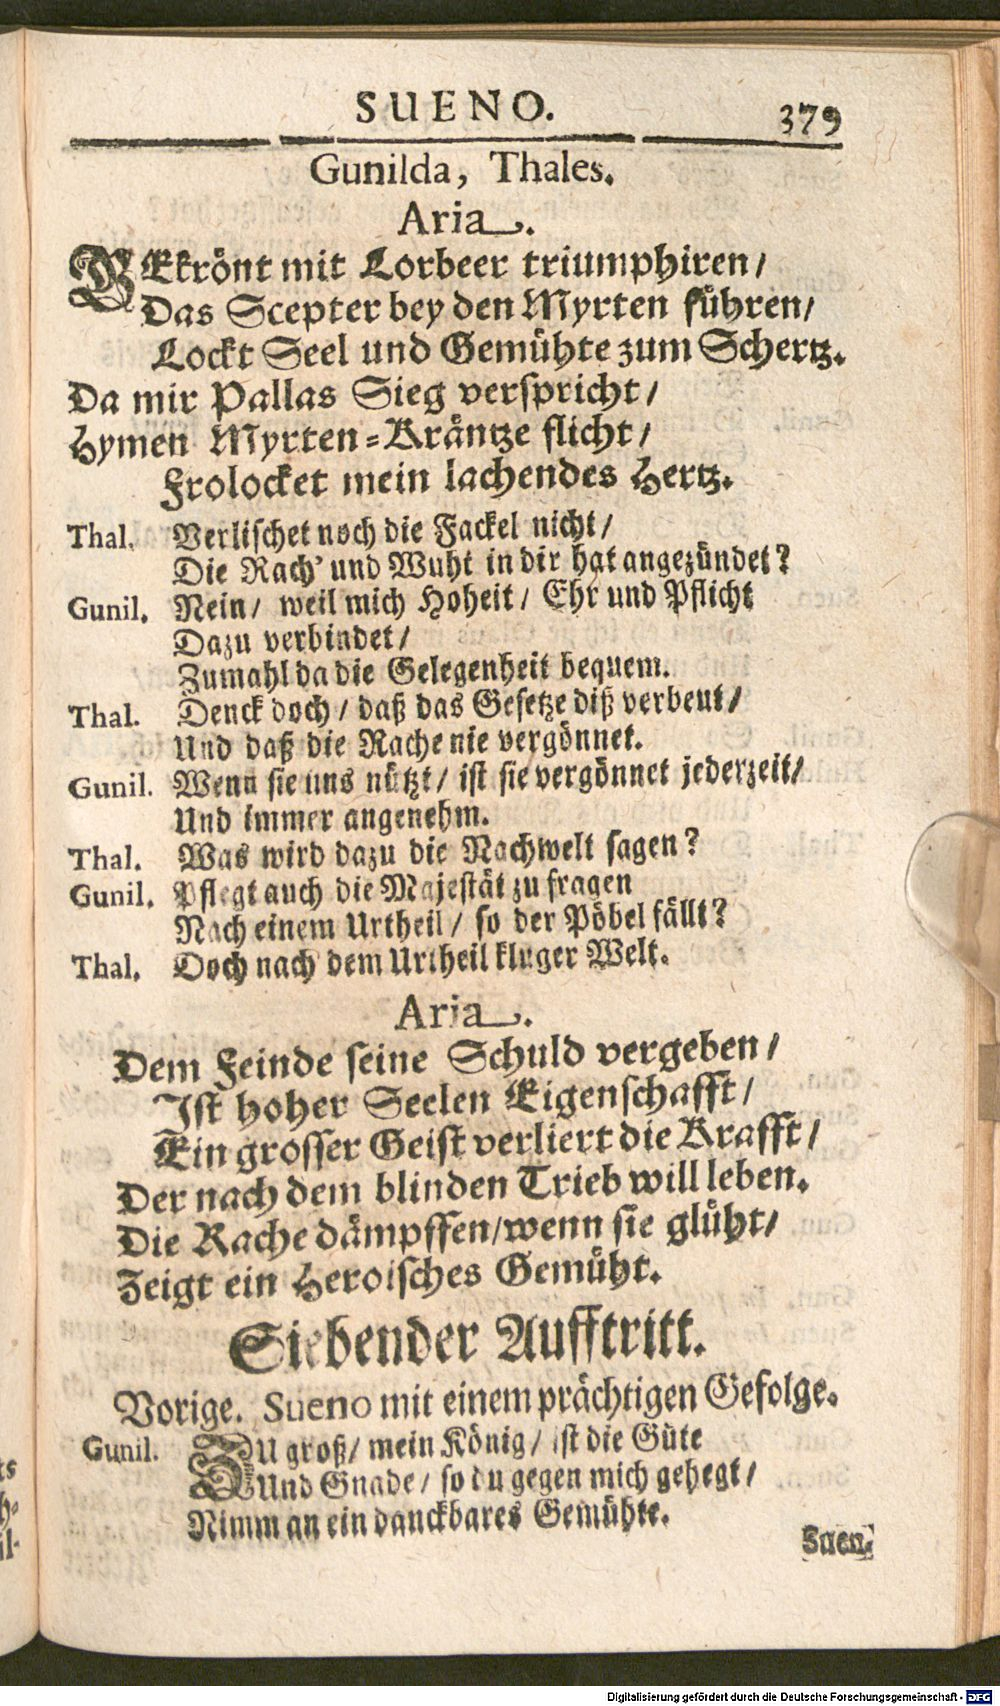 SUENO. 379
Gunilda, Thales.
Aria.
BEkrönt mit Lorbeer triumphiren/
Das Scepter bey den Myrten führen/
Lockt Seel und Gemühte zum Schertz.
Da mir Pallas Sieg verspricht/
Hymen Myrten-Kräntze flicht/
Frolocket mein lachendes Hertz.
Thal. Verlischet noch die Fackel nicht/
Die Rach' und Wuht in dir hat angezündet?
Gunil. Nein/ weil mich Hoheit/ Ehr und Pflicht
Dazu verbindet/
Zumahl da die Gelegenheit bequem.
Thal. Denck doch/ daß das Gesetze diß verbeut/
Und daß die Rache nie vergönnet.
Gunil. Wenn sie uns nützt/ ist sie vergönnet jederzeit/
Und immer angenehm.
Thal. Was wird dazu die Nachwelt sagen?
Gunil. Pflegt auch die Majestät zu fragen
Nach einem Urtheil/ so der Pöbel fällt?
Thal. Doch nach dem Urtheil kluger Welt.
Aria.
Dem Feinde seine Schuld vergeben/
Ist hoher Seelen Eigenschafft/
Ein grosser Geist verliert die Krafft/
Der nach dem blinden Trieb will leben.
Die Rache dämpffen/wenn sie glüht/
Zeigt ein Heroisches Gemüht.
Siebender Aufftritt.
Vorige. Sueno mit einem prächtigen Gefolge.
Gunil. ZU groß/ mein König/ ist die Güte
Und Gnade/ so du gegen mich gehegt/
Nimm an ein danckbares Gemühte.
Suen.
Digitalisierung gefördert durch die Deutsche Forschungsgemeinschaft - DFG